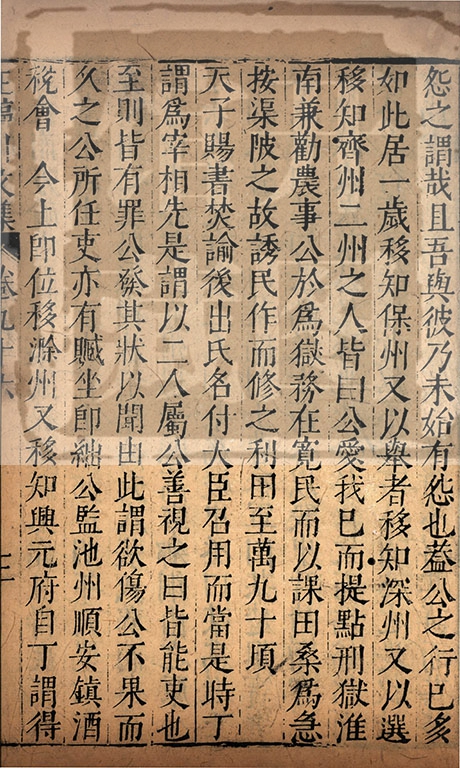 怨之謂哉且吾與彼乃未始有怨也葢公之行已多
如此居一歲移知保州又以舉者移知深州又以選
移知齊州二州之人皆曰公愛我已而提點刑獄淮
南兼勸農事公於爲獄務在寬民而以課田桑爲急
按渠陂之故誘民作而修之利田至萬九十頃
天子賜書奬諭後出氏名付大臣召用而當是時丁
謂爲宰相先是謂以二人屬公善視之曰皆能吏也
至則皆有罪公發其狀以聞由此謂欲傷公不果而
久之公所任吏亦有贓坐卽絀公監池州順安鎮酒
稅會 今上卽位移滁州又移知興元府自丁謂得
王臨川文集 卷九十六